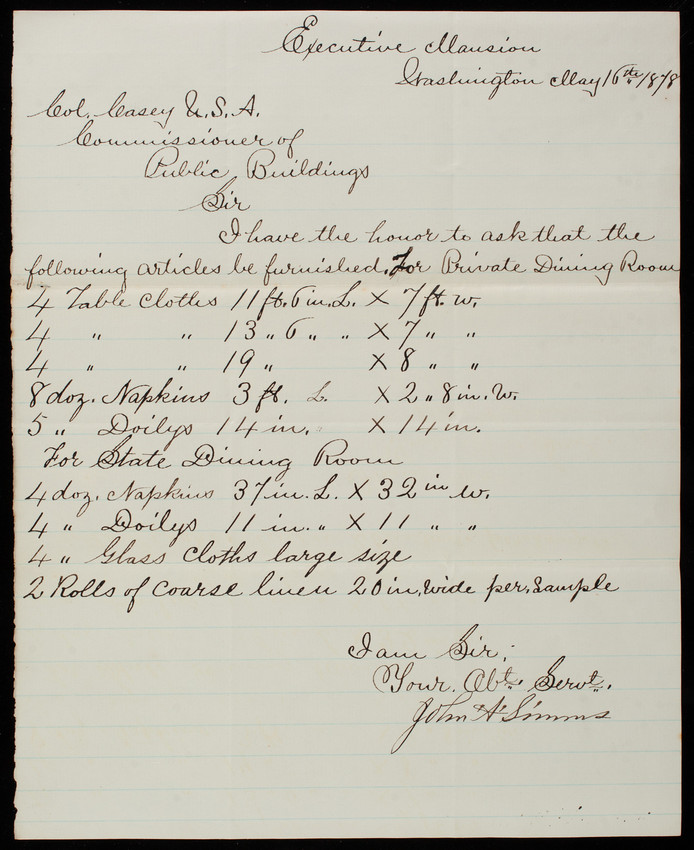 Executive Mansion
Washington May 16th 1878
Col. Casey U.S.A.
Commissioner of
Public Buildings
Sir
I have the honor to ask that the
following articles be furnished. For Private Dining Room
4 Table Cloths 11 ft. 6 in. L. X 7 ft. w.
4 " " 13 " 6 " " X 7 " "
4 " " 19 " X 8 " "
8 doz. Napkins 3 ft. L. X 2 " 8 in. W.
5 " Doilys 14 in. X 14 in.
For State Dining Room
4 doz. Napkins 37 in. L. X 32 in w.
4 " Doilys 11 in. " X 11 " "
4 " Glass Cloths large size
2 Rolls of coarse linen 20 in. wide per. Sample
I am Sir,
Your. Obt. Servt.
John A Simms